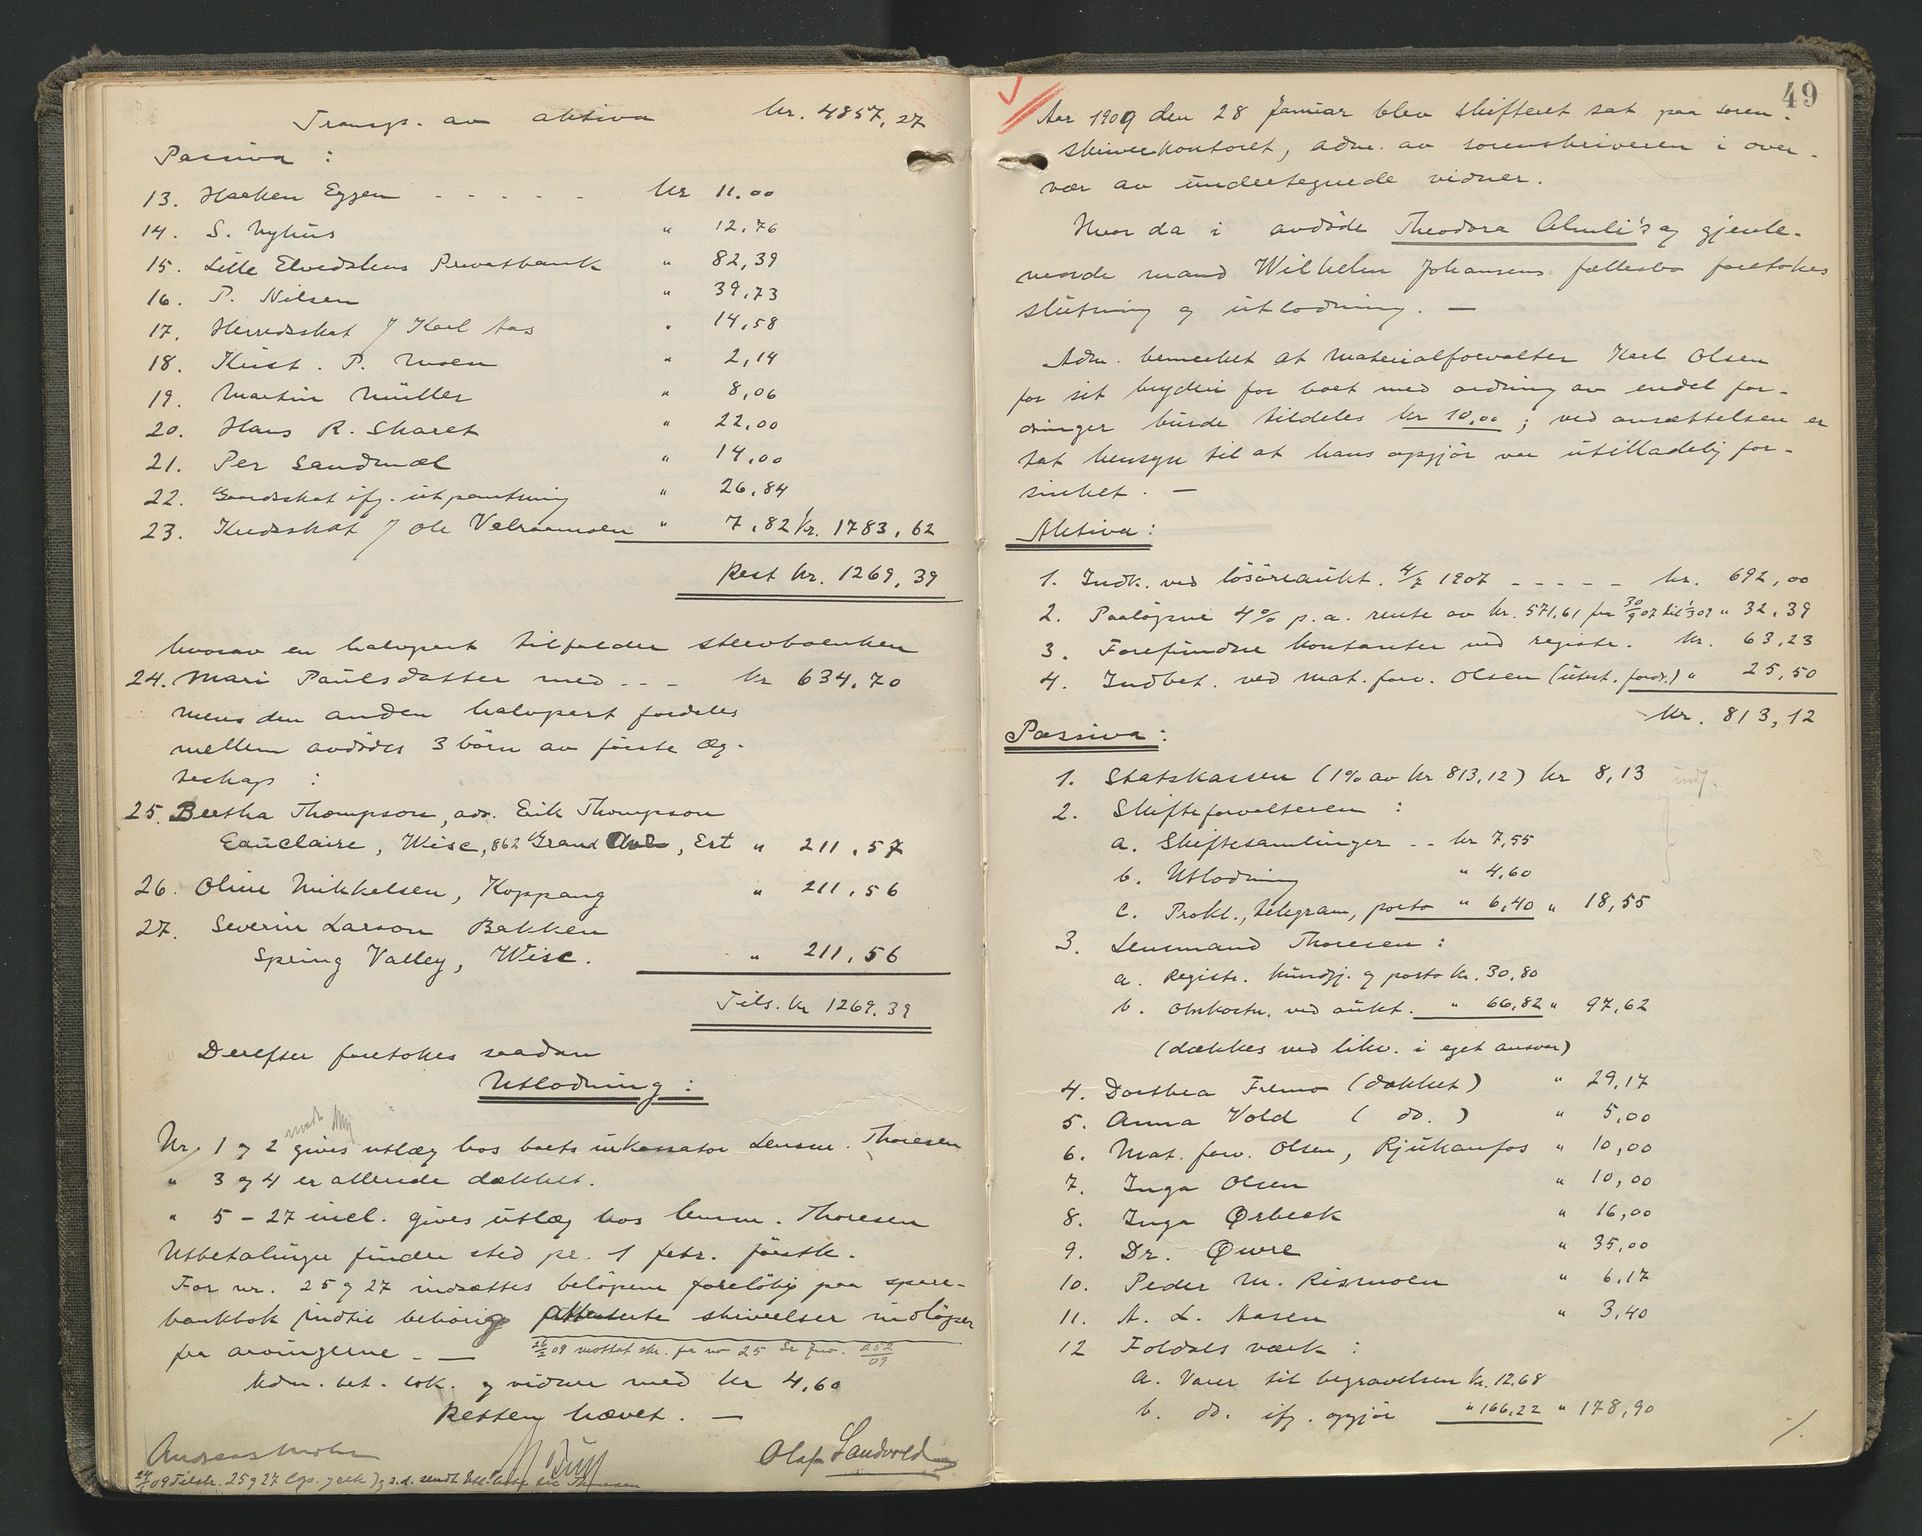 Transp. av aktiva kr. 4857,27
Passiva :
13. Haaken Eggen - - - - - kr 11.00
14. S. Nyhus " 12,76
15. Lille Elvedalens Privatbank " 82,39
16. P. Nilsen " 39,73
17. Herredsskat f Karl Aas " 14,58
18. Krist. P. Moen " 2,14
19. Martin Müller " 8,06
20. Hans R. Skaret " 22,00
21. Per Sandmæl " 14,00
22. skat ifg. utpantning " 26,84
23. skat f Ole " 7,82 kr. 1783,62
Rest kr. 1269,39
hvorav en halvpart tilfalder stervboenken
24. Mari Paulsdatter med - - - kr 634,70
mens den anden halvpart fordeles
mellem avdødes 3 børn av første æg-
teskap :
25. Bertha Thompson, adr. Erik Thompson
Eauclaire, Wisc, 862 Grand Ave, Est " 211,57
26. Oline Mikkelsen, Koppang " 211,56
27. Severin Larson Bakken
Spring Valley, Wisc. " 211,56
Tils. kr 1269,39
Derefter foretokes saadan
Utlodning :
Nr. 1 og 2 gives utlæg hos boets inkassator Lensm. Thoresen
" 3 og 4 er allerede dækket.
" 5 - 27 incl. gives utlæg hos lensm. Thoresen
Utbetalinger finder sted pr. 1 febr. førstk.
For nr. 25 og 27 indsættes beløpene foreløbig paa spare-
bankbok indtil behørig attesterte skrivelser indløper
fra arvingerne. —
26/2 09 mottat skr. fra no 25 252/09
Adm. bet. tok. og vidner med kr 4,60
Retten hævet. —
Andreas Mohn Olaf Sandvold
09 Tilskr. 25 og 27 sendt Thoresen
49
Aar 1909 den 28 Januar blev skifteret sat paa soren-
skriverkontoret, adm. av sorenskriveren i over-
vær av undertegnede vidner.
Hvor da i avdøde Theodora Almli's og gjenle-
vende mand Wilhelm Johansens fællesbo foretokes
slutning og utlodning. —
Adm. bemerket at materialforvalter Karl Olsen
for sit bryderi for boet med ordning av endel for-
dringer burde tildeles kr 10,00 ; ved ansættelsen er
tat hensyn til at hans opgjør var utilladelig for-
sinket. —
Aktiva :
1. Indk. ved løsøreaukt. 4/7 1907 - - - - - kr. 692,00
2. Paaløpne 4% p.a. rente av kr. 571,61 fra 30/9 07 til 1/3 09 " 32,39
3. Forefundne kontanter ved registr. kr. 63,23
4. Indbet. ved mat. forv. Olsen (utest. fordr.) " 25,50
kr. 813,12
Passiva :
1. Statskassen (1% av kr 813,12) kr 8,13
2. Skifteforvalteren :
a. Skiftesamlinger - - kr 7,55
b. Utlodning " 4,60
c. Prokl., telegram, porto " 6,40 " 18,55
3. Lensmand Thoresen :
a. Registr. kundgj. og porto kr. 30,80
b. Omkostn. ved aukt. " 66,82 " 97,62
(dækkes ved likv. i eget ansvar)
4. Dorthea Fremo (dækket) " 29,17
5. Anna Vold ( do. ) " 5,00
6. Mat. forv. Olsen, Rjukanfos " 10,00
7. Inga Olsen " 10,00
8. Inga Ørbeck " 16,00
9. Dr. Øwre " 35,00
10. Peder M. Rismoen " 6,17
11. A. L. Aasen " 3,40
12 Foldals værk :
a. Varer til begravelsen kr. 12,68
b. do. ifg. opgjør " 166,22 " 178,90
./.